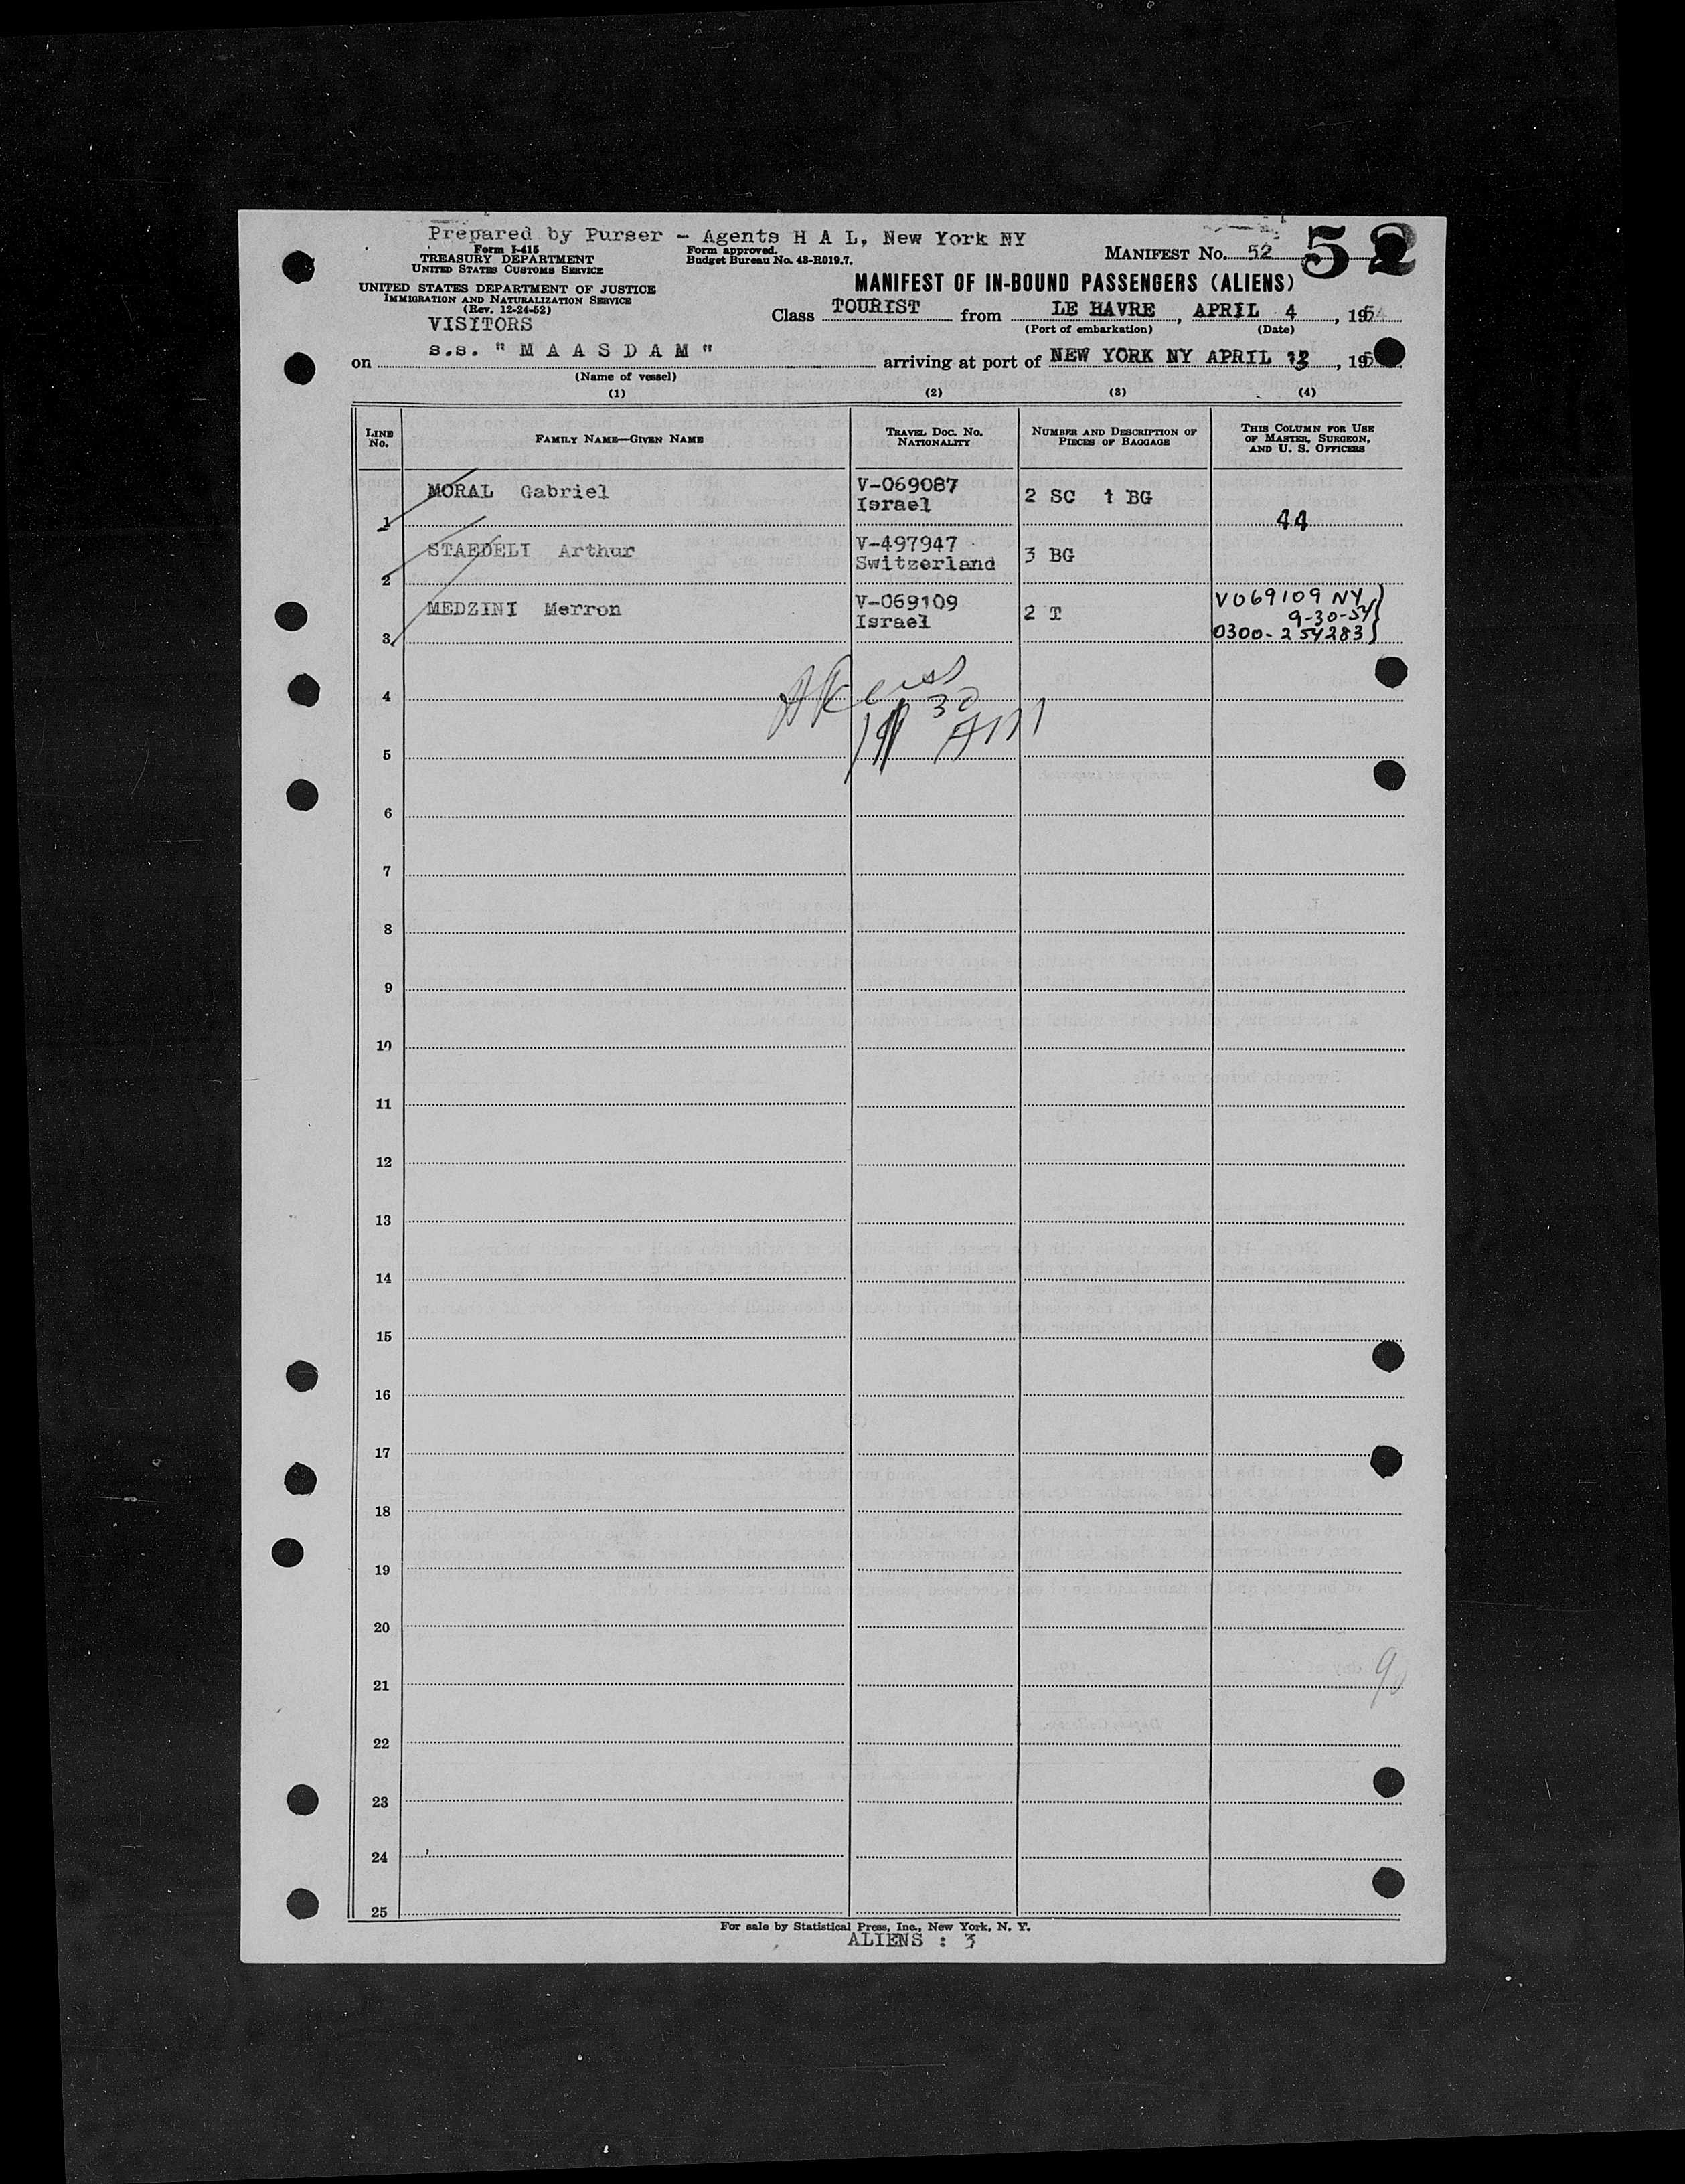 Prepared by Purser - Agents H A L, New York NY
Form I-415
TREASURY DEPARTMENT
UNITED STATES CUSTOMS SERVICE
Form approved.
Budget Bureau No. 43-R019.7.
MANIFEST No. 52
52
UNITED STATES DEPARTMENT OF JUSTICE
IMMIGRATION AND NATURALIZATION SERVICE
(Rev. 12-24-52)
VISITORS
MANIFEST OF IN-BOUND PASSENGERS (ALIENS)
Class TOURIST from LE HAVRE, APRIL 4, 195
(Port of embarkation) (Date)
on s.s. " M A A S D A M " arriving at port of NEW YORK NY APRIL 13, 195
(Name of vessel)
(1) (2) (3) (4)
LINE No.
FAMILY NAME—GIVEN NAME
TRAVEL DOC. NO. NATIONALITY
NUMBER AND DESCRIPTION OF PIECES OF BAGGAGE
THIS COLUMN FOR USE OF MASTER, SURGEON, AND U. S. OFFICERS
1 MORAL Gabriel V-069087 Israel 2 SC 1 BG 44
2 STAEDELI Arthur V-497947 Switzerland 3 BG
3 MEDZINI Merron V-069109 Israel 2 T V069109 NY 9-30-54 0300-254283
4
30
AM
5
6
7
8
9
10
11
12
13
14
15
16
17
18
19
20
21
22
23
24
25
For sale by Statistical Press, Inc., New York, N. Y.
ALIENS : 3